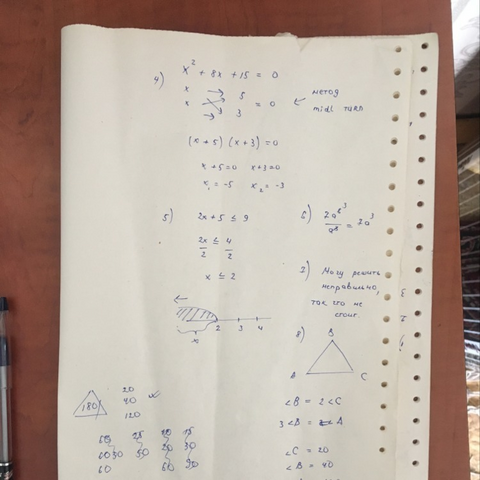 4) x² + 8x + 15 = 0
x → 5
x → 3 = 0 ← метод
midl turn
(x + 5) (x + 3) = 0
x + 5 = 0 x + 3 = 0
x₁ = -5 x₂ = -3
5) 2x + 5 ≤ 9
2x/2 ≤ 4/2
x ≤ 2
←
2 3 4
6) = 2a³
7) Могу решить
неправильно,
так что не
стоит.
8) B
A C
∠B = 2∠C
3∠B = ∠A
∠C = 20
∠B = 40
180
20
40
120
60 25 10 15
60 30 50 20 30
60 60 90